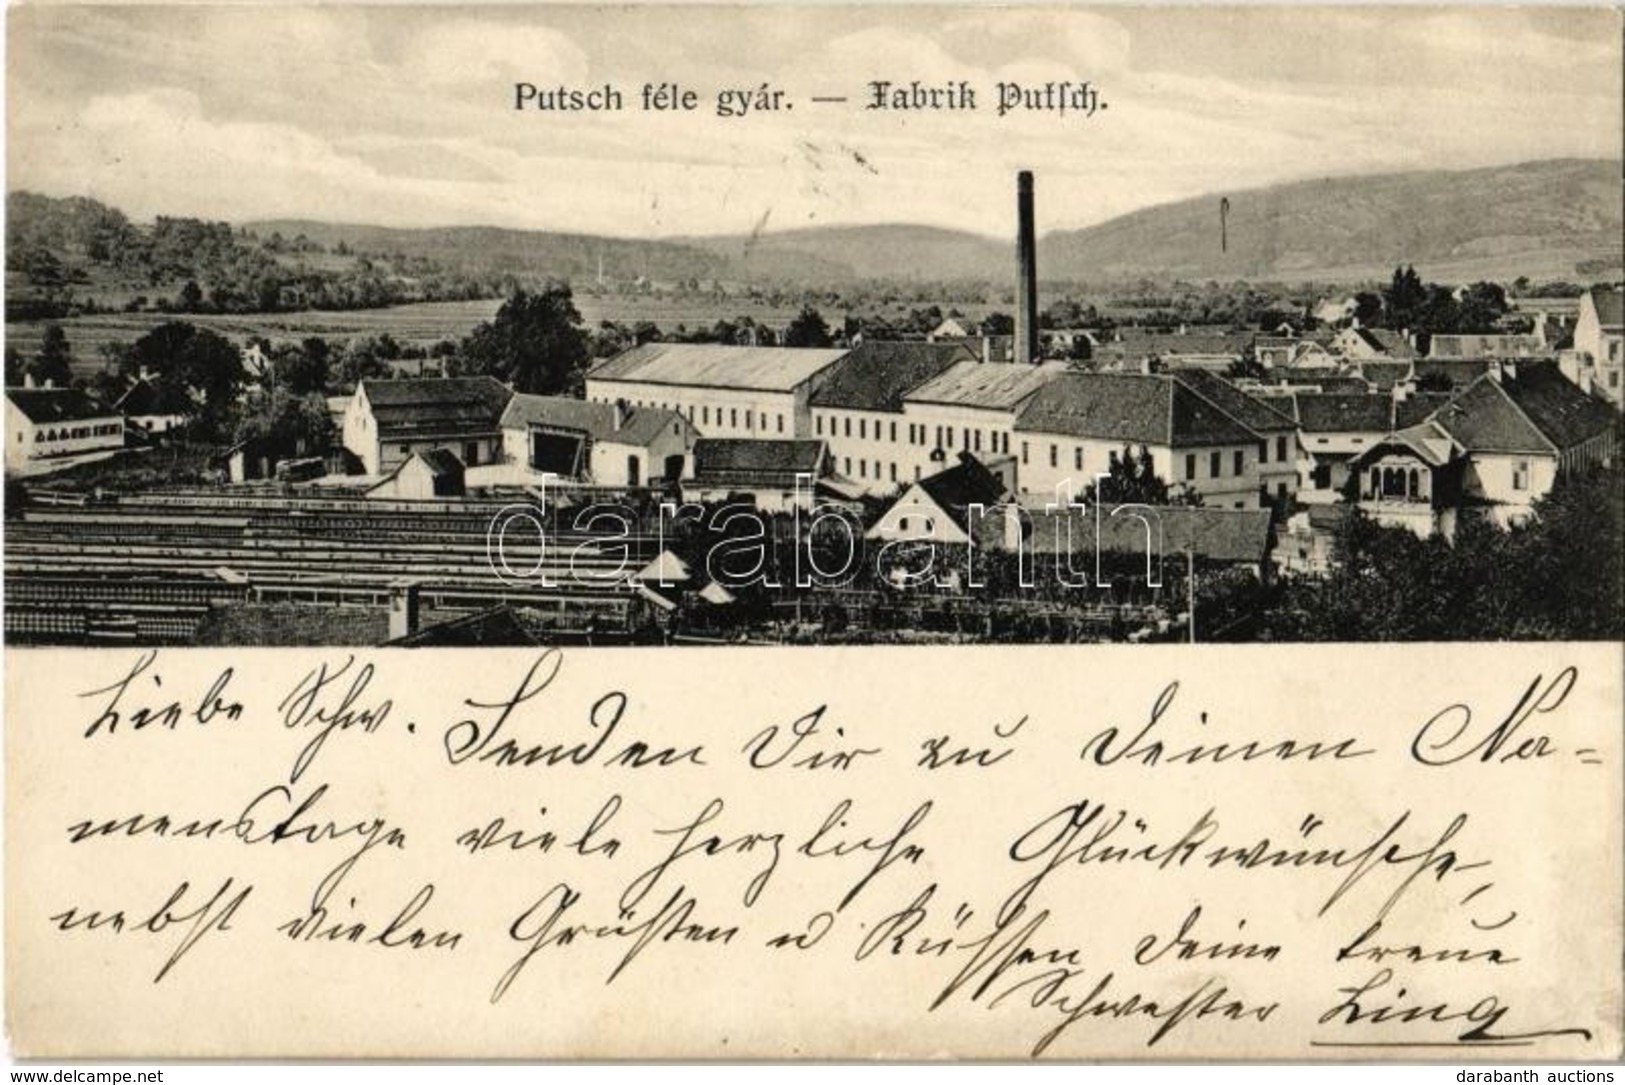 Putsch féle gyár. — Fabrik Putsch.
darabanth
Liebe Schw. Senden Dir zu Deinen Na=
menstage viele herzliche Glückwünsche,
nebst vielen Grüßten u Küssen Deine treue
Schwester Lina
www.delcampe.net
darabanth auctions